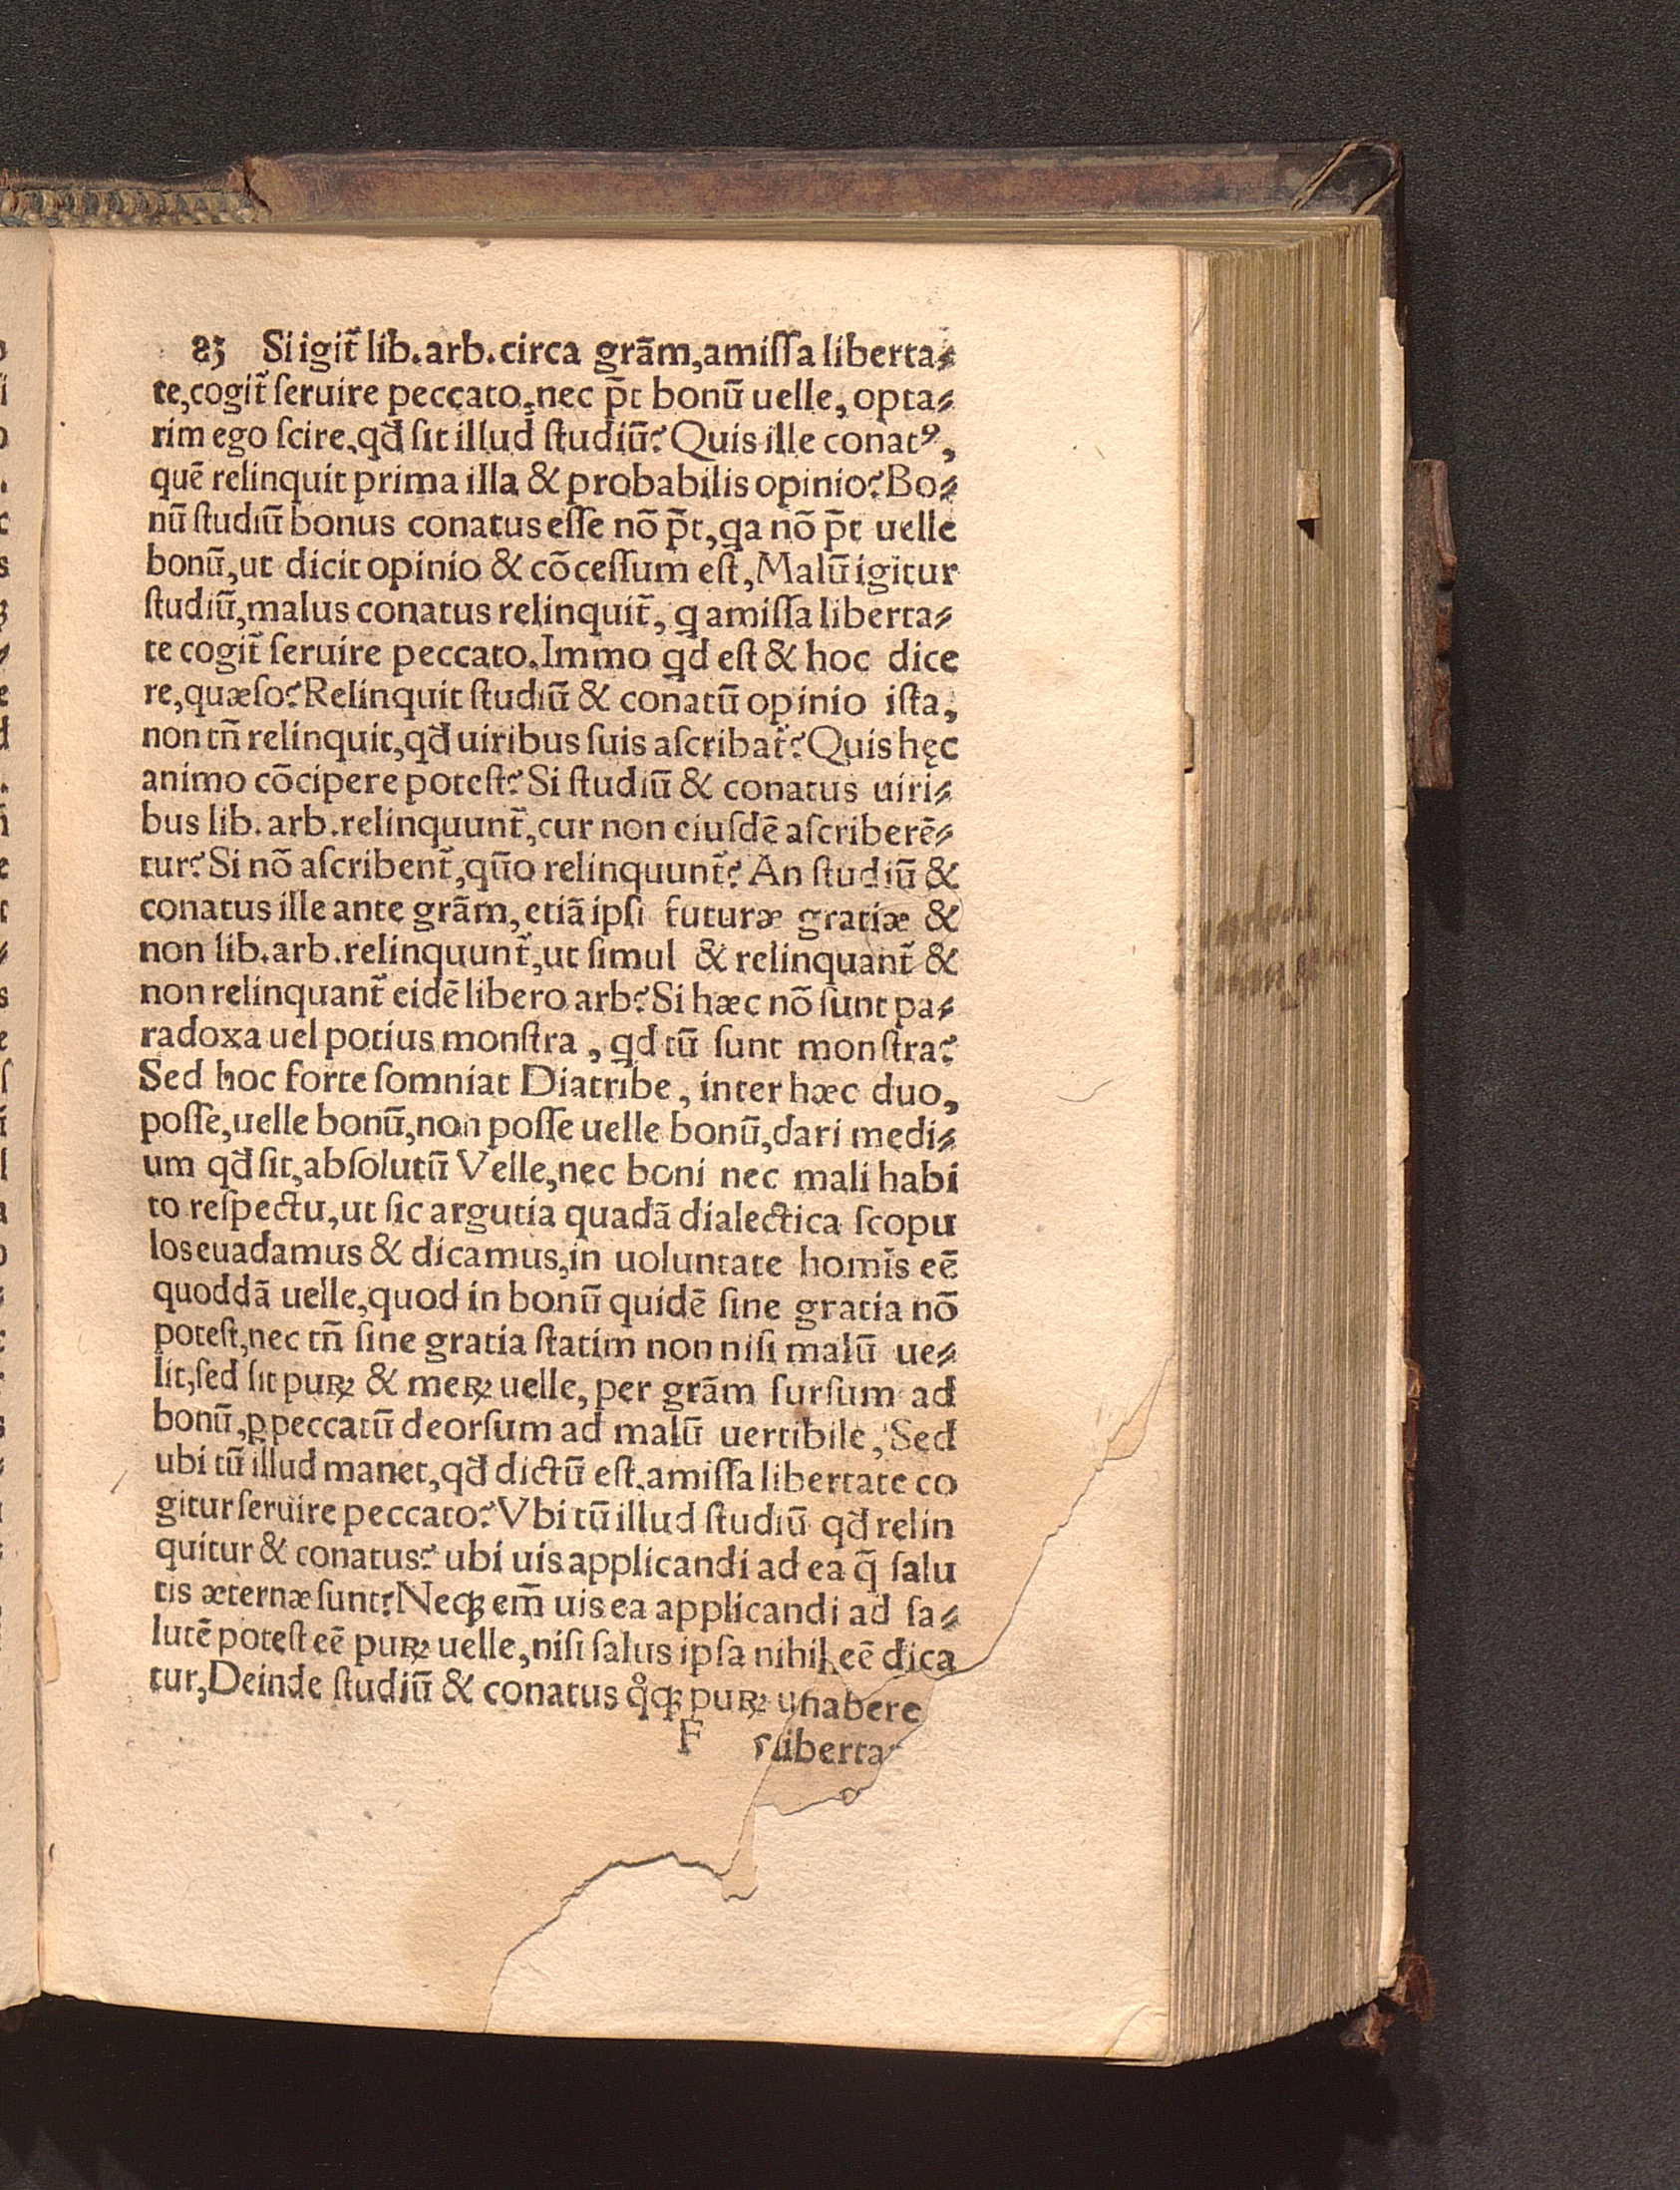 83 Si igit̃ lib. arb. circa grãm, amiſſa liberta⸗
te, cogit̃ ſeruire peccato, nec p̃t bonũ uelle, opta⸗
rim ego ſcire, qđ ſit illud ſtudiũ? Quis ille conatꝰ,
quẽ relinquit prima illa & probabilis opinio? Bo⸗
nũ ſtudiũ bonus conatus eſſe nõ p̃t, ꝗa nõ p̃t uelle
bonũ, ut dicit opinio & cõceſſum eſt, Malũ igitur
ſtudiũ, malus conatus relinquit̃, ꝗ amiſſa liberta⸗
te cogit̃ ſeruire peccato. Immo ꝗd eſt & hoc dice
re, quæſo? Relinquit ſtudiũ & conatũ opinio iſta,
non tñ relinquit, qđ uiribus ſuis aſcribat̃? Quis hęc
animo cõcipere poteſt? Si ſtudiũ & conatus uiri⸗
bus lib. arb. relinquunt̃, cur non eiuſdẽ aſcriberẽ⸗
tur? Si nõ aſcribent̃, qũo relinquunt̃? An ſtudiũ &
conatus ille ante grãm, etiã ipſi futuræ gratiæ &
non lib. arb. relinquunt̃, ut ſimul & relinquant̃ &
non relinquant̃ eidẽ libero arb? Si hæc nõ ſunt pa⸗
radoxa uel potius monſtra, ꝗd tũ ſunt monſtra?
Sed hoc forte ſomniat Diatribe, inter hæc duo,
poſſe, uelle bonũ, non poſſe uelle bonũ, dari medi⸗
um qđ ſit, abſolutũ Velle, nec boni nec mali habi
to reſpectu, ut ſic argutia quadã dialectica ſcopu
los euadamus & dicamus, in uoluntate homĩs eẽ
quoddã uelle, quod in bonũ quidẽ ſine gratia nõ
poteſt, nec tñ ſine gratia ſtatim non niſi malũ ue⸗
lit, ſed ſit puꝝ & meꝝ uelle, per grãm ſurſum ad
bonũ, ꝑ peccatũ deorſum ad malũ uertibile, Sed
ubi tũ illud manet, qđ dictũ eſt, amiſſa libertate co
gitur ſeruire peccato? Vbi tũ illud ſtudiũ qđ relin
quitur & conatus? ubi uis applicandi ad ea q̃ ſalu
tis æternæ ſunt? Neqꝫ em̃ uis ea applicandi ad ſa⸗
lutẽ poteſt eẽ puꝝ uelle, niſi ſalus ipſa nihil eẽ dica
tur, Deinde ſtudiũ & conatus qͦqꝫ puꝝ habere
F liberta⸗